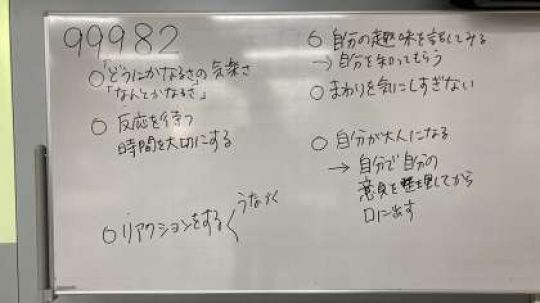 99982
○「どうにかなるさ」の気楽さ
「なんとかなるさ」
○ 反応を待つ
時間を大切にする
○リアクションをする< うなづく
○ 自分の趣味を話してみる
→ 自分を知ってもらう
○ まわりを気にしすぎない
○ 自分が大人になる
→ 自分で自分の
意見を整理してから
口に出す